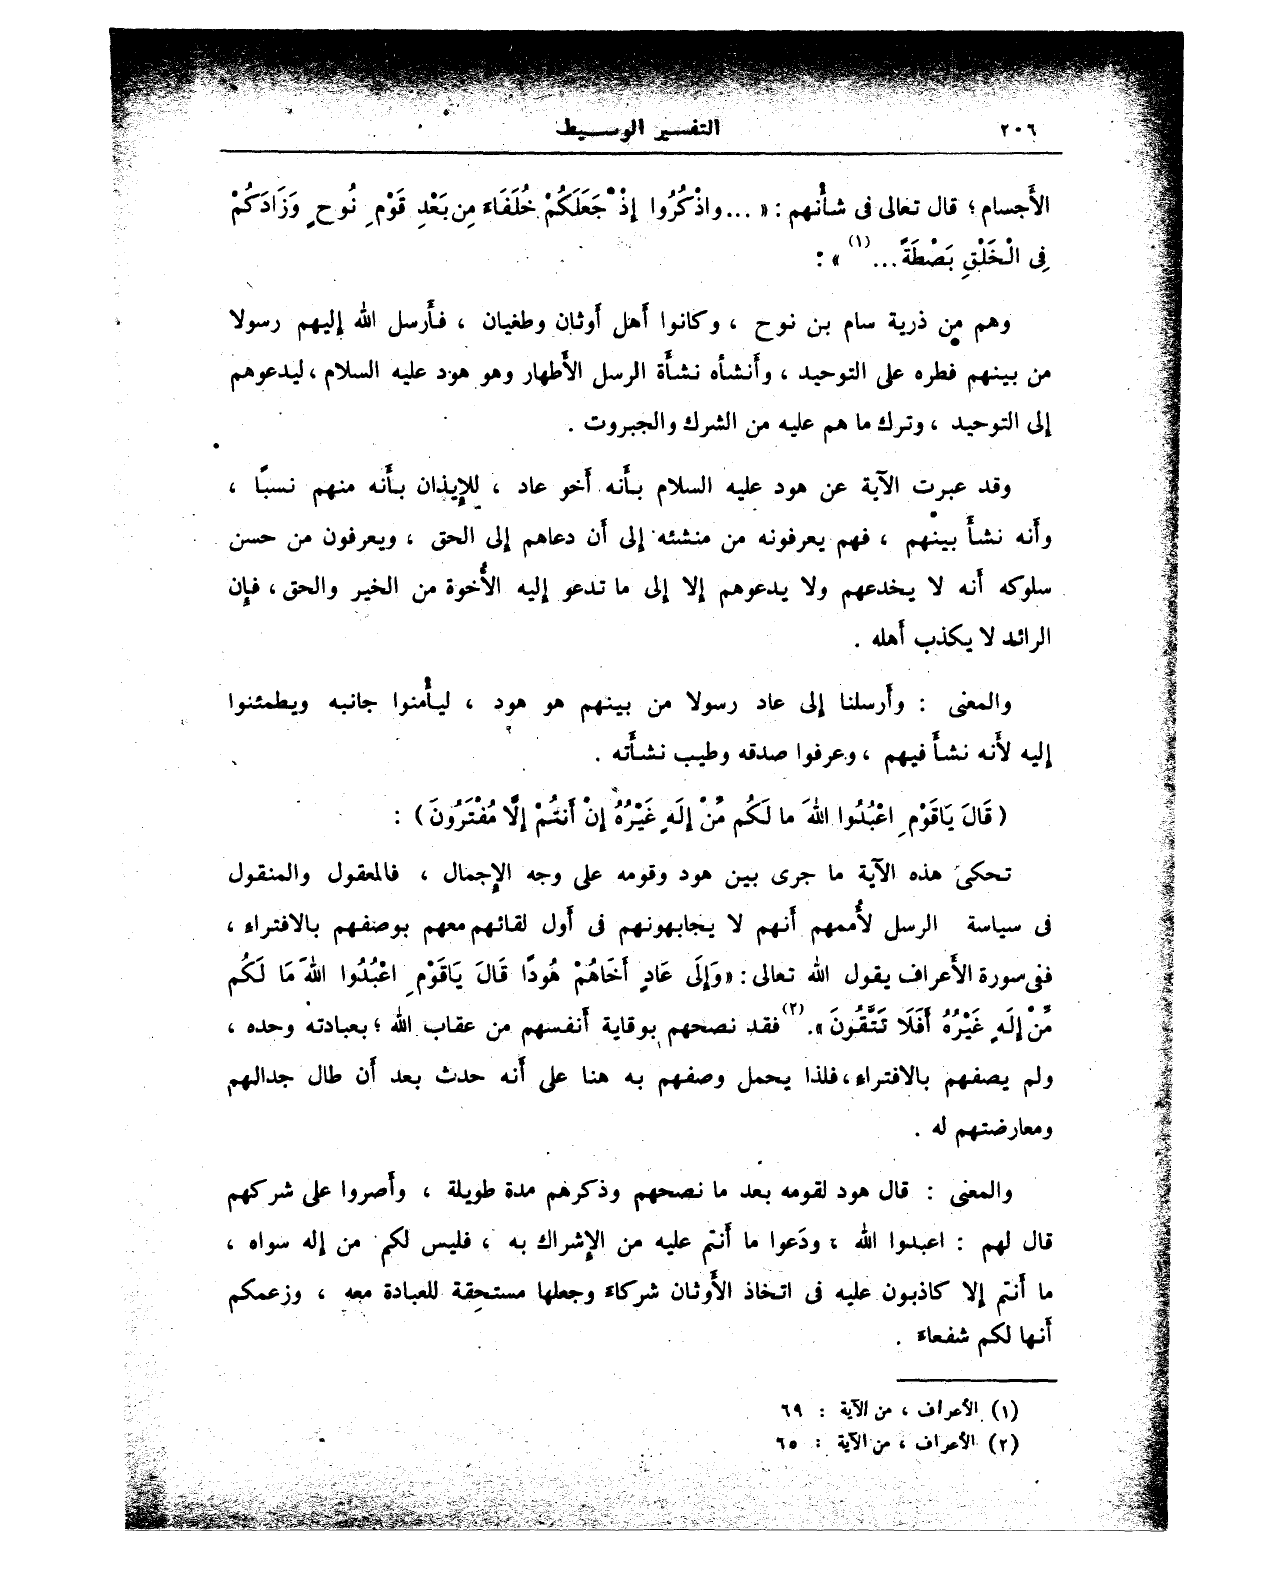 ٢٠٦ التفسير الوسيط
الأَجسام؛ قال تعالى فى شأْنهم: «...واذْكُرُوا إِذْ جَعَلَكُمْ خُلَفَاءَ مِن بَعْدِ قَوْمِ نُوحٍ وَزَادَكُمْ
فِى الْخَلْقِ بَصْطَةً...(١)»:
وهم من ذرية سام بن نوح ، وكانوا أَهل أَوثان وطغيان ، فأَرسل الله إليهم رسولا
من بينهم فطره على التوحيد ، وأَنشأه نشأَة الرسل الأَطهار وهو هود عليه السلام ، ليدعوهم
إلى التوحيد ، وترك ما هم عليه من الشرك والجبروت .
وقد عبرت الآية عن هود عليه السلام بأَنه أَخو عاد ، للإيذان بأَنه منهم نسبًا ،
وأَنه نشأَ بينهم ، فهم يعرفونه من منشئه إلى أَن دعاهم إلى الحق ، ويعرفون من حسن
سلوكه أَنه لا يخدعهم ولا يدعوهم إلا إلى ما تدعو إليه الأُخوة من الخير والحق ، فإن
الرائد لا يكذب أَهله .
والمعنى : وأَرسلنا إلى عاد رسولا من بينهم هو هود ، ليأْمنوا جانبه ويطمئنوا
إليه لأَنه نشأَ فيهم ، وعرفوا صدقه وطيب نشأَته .
(قَالَ يَاقَوْمِ اعْبُدُوا اللهَ ما لَكُم مِّنْ إِلَهٍ غَيْرُهُ إِنْ أَنتُمْ إِلَّا مُفْتَرُونَ) :
تحكى هذه الآية ما جرى بين هود وقومه على وجه الإجمال ، فالمعقول والمنقول
فى سياسة الرسل لأُممهم أَنهم لا يجابهونهم فى أَول لقائهم معهم بوصفهم بالافتراء ،
ففى سورة الأَعراف يقول الله تعالى: «وَإِلَى عَادٍ أَخَاهُمْ هُودًا قَالَ يَاقَوْمِ اعْبُدُوا اللهَ مَا لَكُم
مِّنْ إِلَهٍ غَيْرُهُ أَفَلَا تَتَّقُونَ».(٢) فقد نصحهم بوقاية أَنفسهم من عقاب الله ؛ بعبادته وحده ،
ولم يصفهم بالافتراء، فلذا يحمل وصفهم به هنا على أَنه حدث بعد أَن طال جدالهم
ومعارضتهم له .
والمعنى : قال هود لقومه بعد ما نصحهم وذكرهم مدة طويلة ، وأَصروا على شركهم
قال لهم : اعبدوا الله ، ودَعوا ما أَنتم عليه من الإشراك به ، فليس لكم من إله سواه ،
ما أَنتم إلا كاذبون عليه فى اتخاذ الأَوثان شركاءَ وجعلها مستحقة للعبادة معه ، وزعمكم
أَنها لكم شفعاءَ .
(١) الأعراف ، من الآية : ٦٩
(٢) الأعراف ، من الآية : ٦٥